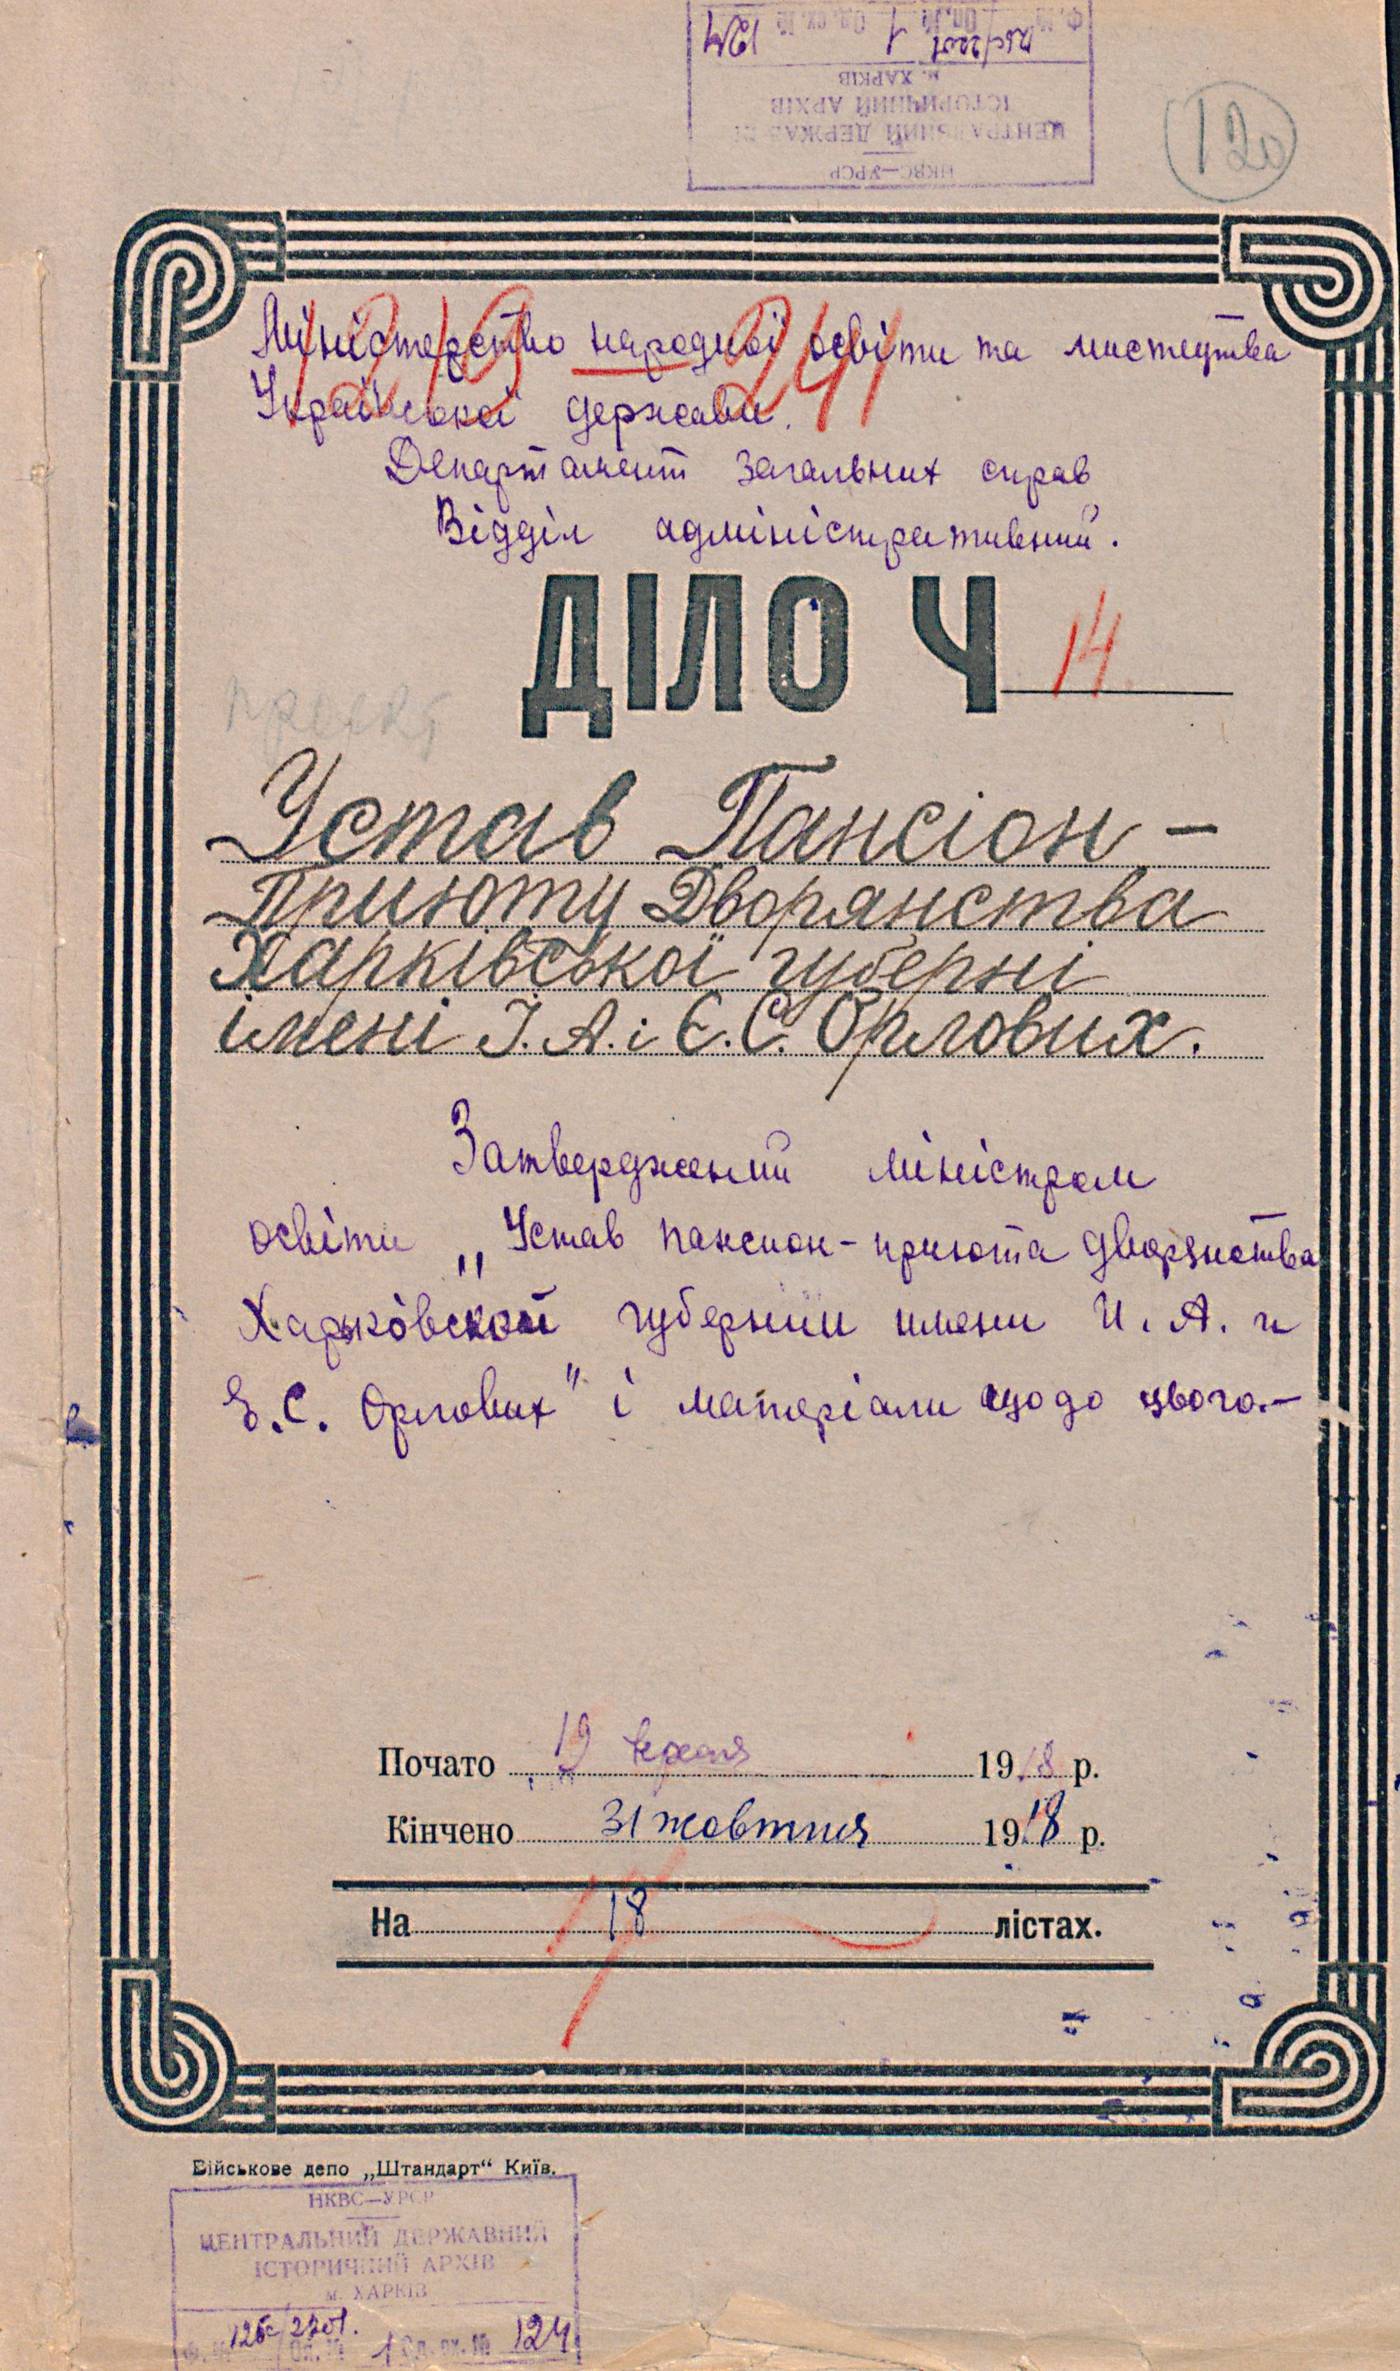 Ф. № Оп. № Од. зх. №
1 124
м. ХАРКІВ
ІСТОРИЧНИЙ АРХІВ
ЦЕНТРАЛЬНИЙ ДЕРЖАВ
НКВС—УРСР
120
1219 241
Міністерство народньої освіти та мистецтва
Української держави.
Департамент загальних справ
Відділ адміністративний.
ДІЛО Ч 14
проект
Устав Пансіон –
Приюту Дворянства
Харківської губерні
імені І. А. і Є. С. Орлових.
Затверджений міністром
освіти „Устав пансион-приюта дворянства
Харьковской губернии имени И. А. и
Е. С. Орлових" і матеріали щодо цього.–
Почато 19 1918 р.
Кінчено 31 жовтня 1918 р.
На 18 лістах.
Військове депо „Штандарт“ Київ.
НКВС—УРСР
ЦЕНТРАЛЬНИЙ ДЕРЖАВНИЙ
ІСТОРИЧНИЙ АРХІВ
м. ХАРКІВ
Ф. № Оп. № 1 Од. зх. № 124